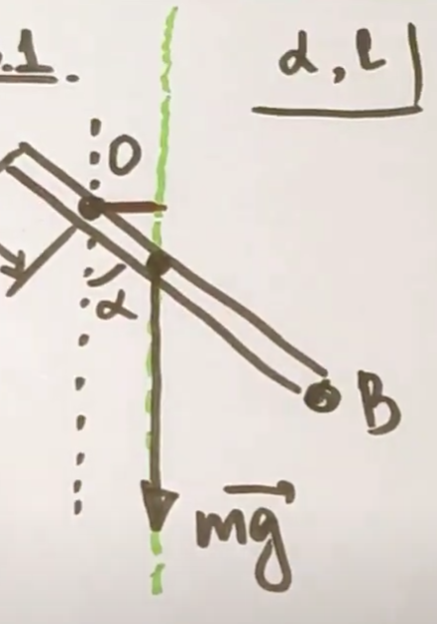 .1.
α, ℓ
O
α
B
mg